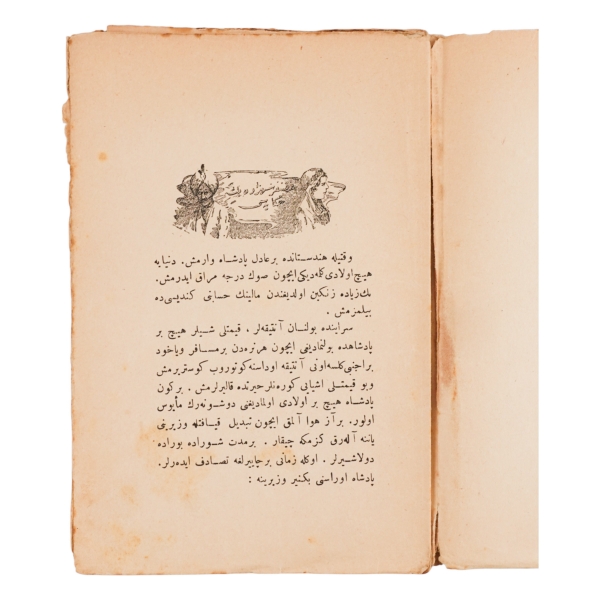 وقتیله هندستانده بر عادل پادشاه وارمش. دنیایه
هیچ اولادی كله‌دیكی ایچون صوك درجه مراق ایدرمش.
پك زیاده زنكین اولدیغندن مالینك حسابنی كندیسی ده
بیلمزمش.
سراینده بولنان آنتیقه‌لر، قیمتلی شیلر هیچ بر
پادشاهده بولنمادیغی ایچون هر نره‌دن بر مسافر ویاخود
بر اجنبی كلسه اونی آنتیقه اوداسنه كوتوروب كوستریرمش
وبو قیمتلی اشیایی كوره‌نلر حیرتده قالیرلرمش. بر كون
پادشاه هیچ بر اولادی اولمادیغنی دوشونه‌رك مأیوس
اولور. بر آز هوا آلمق ایچون تبدیل قیافتله وزیرینی
یاننه آله‌رق كزمكه چیقار. بر مدت شوراده بوراده
دولاشیرلر. اوكله زمانی بر چاییرلغه تصادف ایده‌رلر.
پادشاه اوراسنی بكنیر وزیرینه: